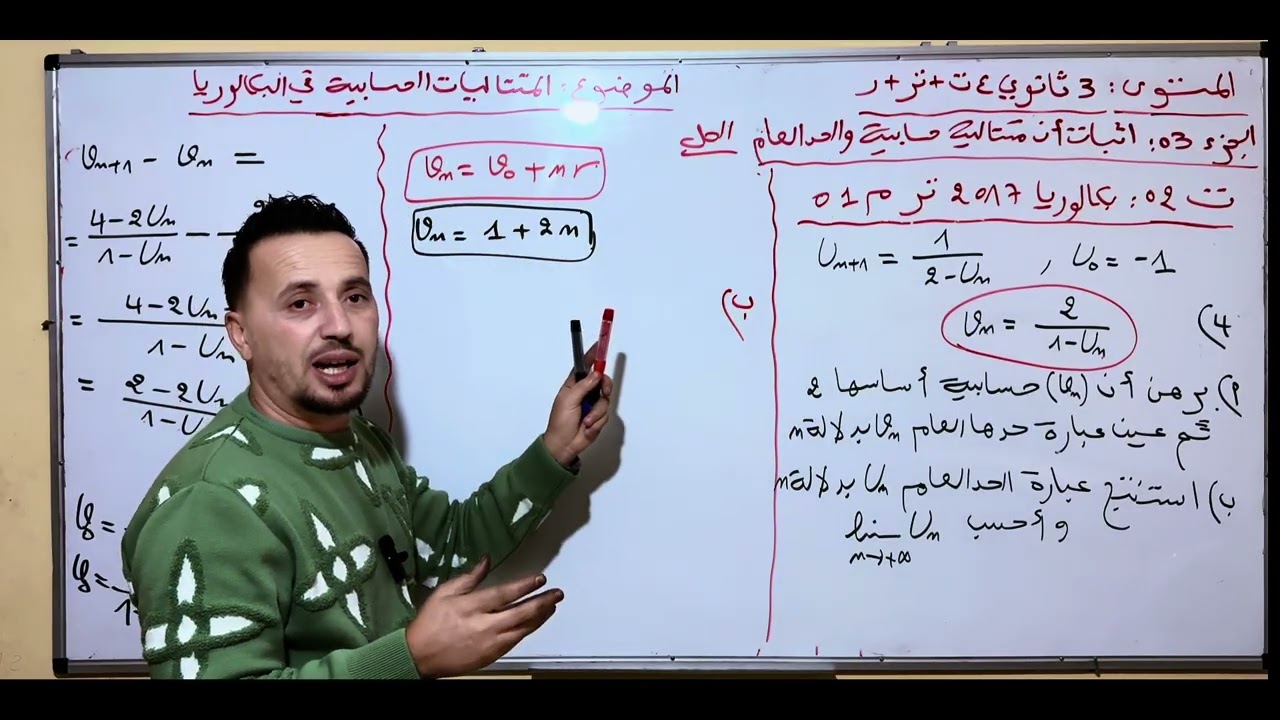 المستوى: 3 ثانوي ع ت + تر + ر
الموضوع: المتتاليات الحسابية في البكالوريا
الجزء 03: اثبات أن متتالية حسابية والحد العام
الحل
ت 02: بكالوريا 2017 تر م 01
U_{n+1} = 1/(2-U_n) , U_0 = -1
4) V_n = 2/(1-U_n)
أ) برهن أن (V_n) حسابية أساسها 2
ثم عين عبارة حدها العام V_n بدلالة n
ب) استنتج عبارة الحد العام U_n بدلالة n
و أحسب lim U_n
n→+∞
ب)
V_n = V_0 + n r
V_n = 1 + 2n
V_{n+1} - V_n =
= (4-2U_n)/(1-U_n) - 2
= 4-2U_n
1-U_n
= 2-2U_n
1-U
V_0 =
V_0 =